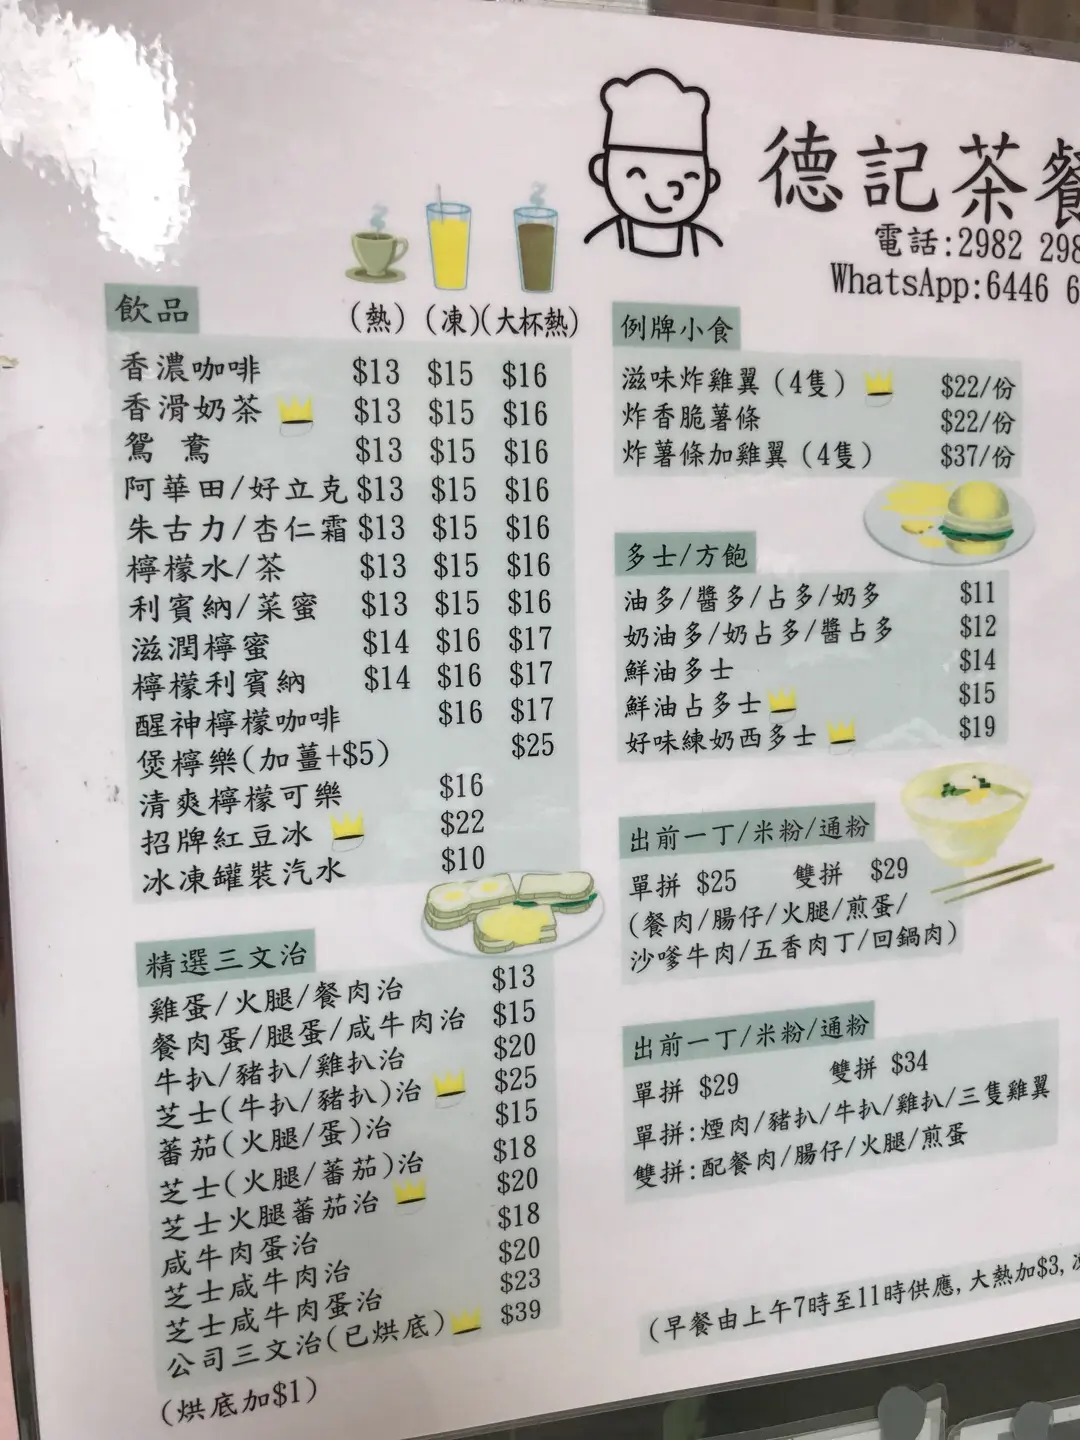 德記茶餐
電話:2982 298
WhatsApp:6446 6
飲品 (熱) (凍) (大杯熱)
香濃咖啡 $13 $15 $16
香滑奶茶 $13 $15 $16
鴛鴦 $13 $15 $16
阿華田/好立克 $13 $15 $16
朱古力/杏仁霜 $13 $15 $16
檸檬水/茶 $13 $15 $16
利賓納/菜蜜 $13 $15 $16
滋潤檸蜜 $14 $16 $17
檸檬利賓納 $14 $16 $17
醒神檸檬咖啡 $16 $17
煲檸樂(加薑+$5) $25
清爽檸檬可樂 $16
招牌紅豆冰 $22
冰凍罐裝汽水 $10
精選三文治
雞蛋/火腿/餐肉治 $13
餐肉蛋/腿蛋/咸牛肉治 $15
牛扒/豬扒/雞扒治 $20
芝士(牛扒/豬扒)治 $25
蕃茄(火腿/蛋)治 $15
芝士(火腿/蕃茄)治 $18
芝士火腿蕃茄治 $20
咸牛肉蛋治 $18
芝士咸牛肉治 $20
芝士咸牛肉蛋治 $23
公司三文治(已烘底) $39
(烘底加$1)
例牌小食
滋味炸雞翼(4隻) $22/份
炸香脆薯條 $22/份
炸薯條加雞翼(4隻) $37/份
多士/方飽
油多/醬多/占多/奶多 $11
奶油多/奶占多/醬占多 $12
鮮油多士 $14
鮮油占多士 $15
好味練奶西多士 $19
出前一丁/米粉/通粉
單拼 $25 雙拼 $29
(餐肉/腸仔/火腿/煎蛋/
沙嗲牛肉/五香肉丁/回鍋肉)
出前一丁/米粉/通粉
單拼 $29 雙拼 $34
單拼:煙肉/豬扒/牛扒/雞扒/三隻雞翼
雙拼:配餐肉/腸仔/火腿/煎蛋
(早餐由上午7時至11時供應,大熱加$3,